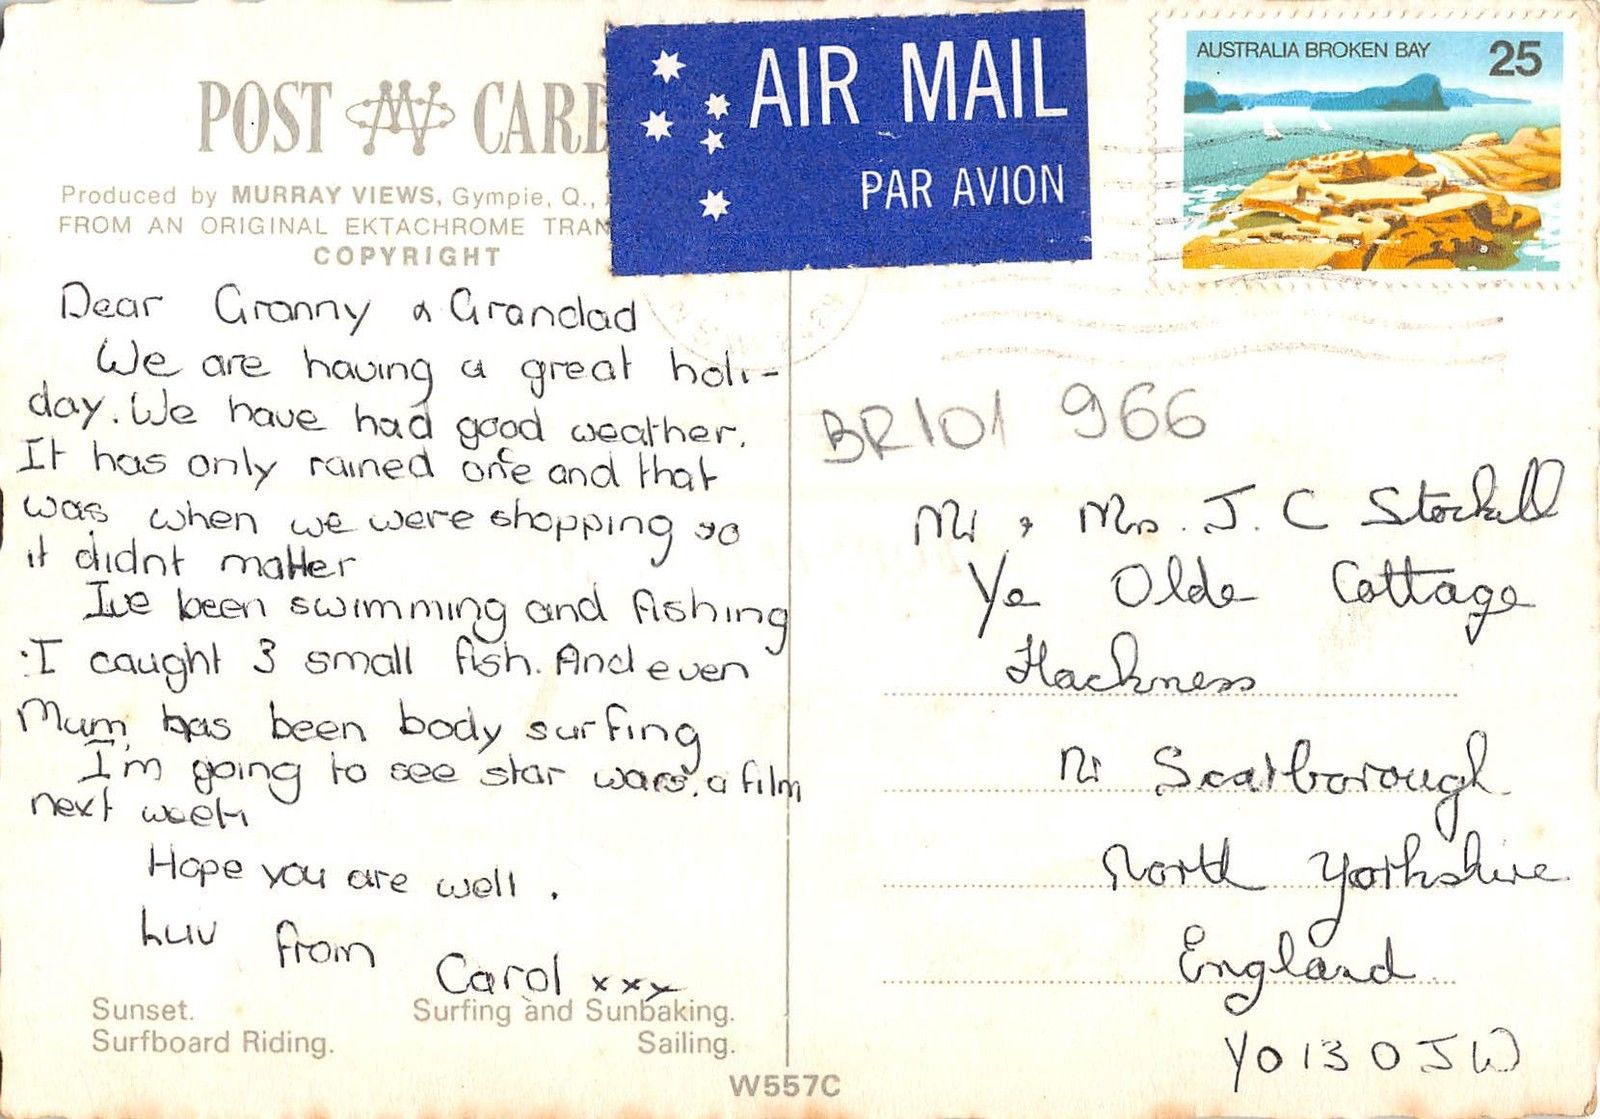 POST CARD
Produced by MURRAY VIEWS, Gympie, Q.,
FROM AN ORIGINAL EKTACHROME TRAN
COPYRIGHT
AIR MAIL
PAR AVION
AUSTRALIA BROKEN BAY 25
Dear Granny & Grandad
We are having a great holi-
day. We have had good weather.
It has only rained once and that
was when we were shopping so
it didnt matter
Ive been swimming and fishing
I caught 3 small fish. And even
Mum has been body surfing
I'm going to see star wars, a film
next week
Hope you are well.
Luv from
Carol xxx
BR101 966
Mr & Mrs. J. C Stockill
Ye Olde Cottage
Hackness
Nr Scarborough
North Yorkshire
England
YO13 0JW
Sunset. Surfing and Sunbaking.
Surfboard Riding. Sailing.
W557C